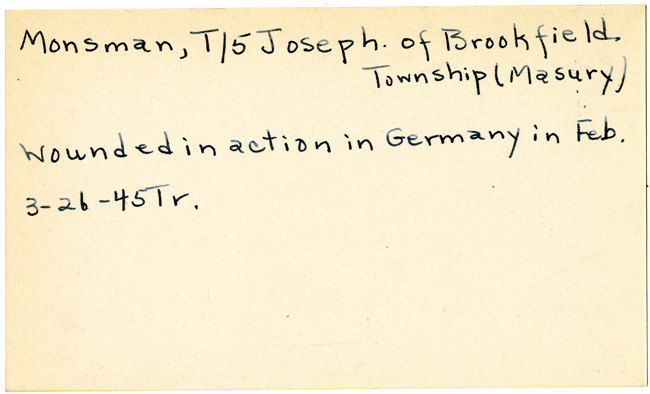 Monsman, T/5 Joseph. of Brookfield
Township (Masury)
Wounded in action in Germany in Feb.
3-26-45 Tr.